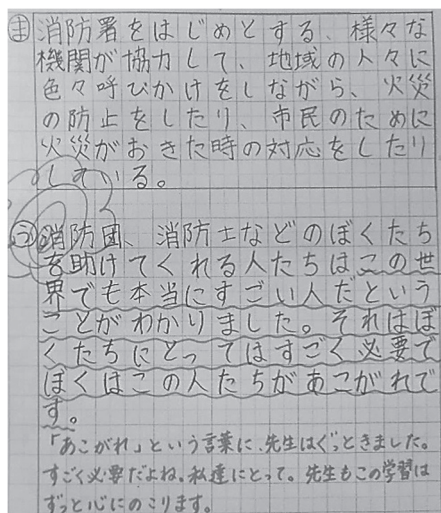 ㋮消防署をはじめとする、様々な
機関が協力して、地域の人々に
色々呼びかけをしながら、火災
の防止をしたり、市民のために
火災がおきた時の対応をしたり
している。
㋒消防団、消防士などのぼくたち
を助けてくれる人たちはこの世
界でも本当にすごい人だという
ことがわかりました。それはぼ
くたちにとってはすごく必要で
ぼくはこの人たちがあこがれで
す。
「あこがれ」という言葉に、先生はぐっときました。
すごく必要だよね。私達にとって。先生もこの学習は
ずっと心にのこります。